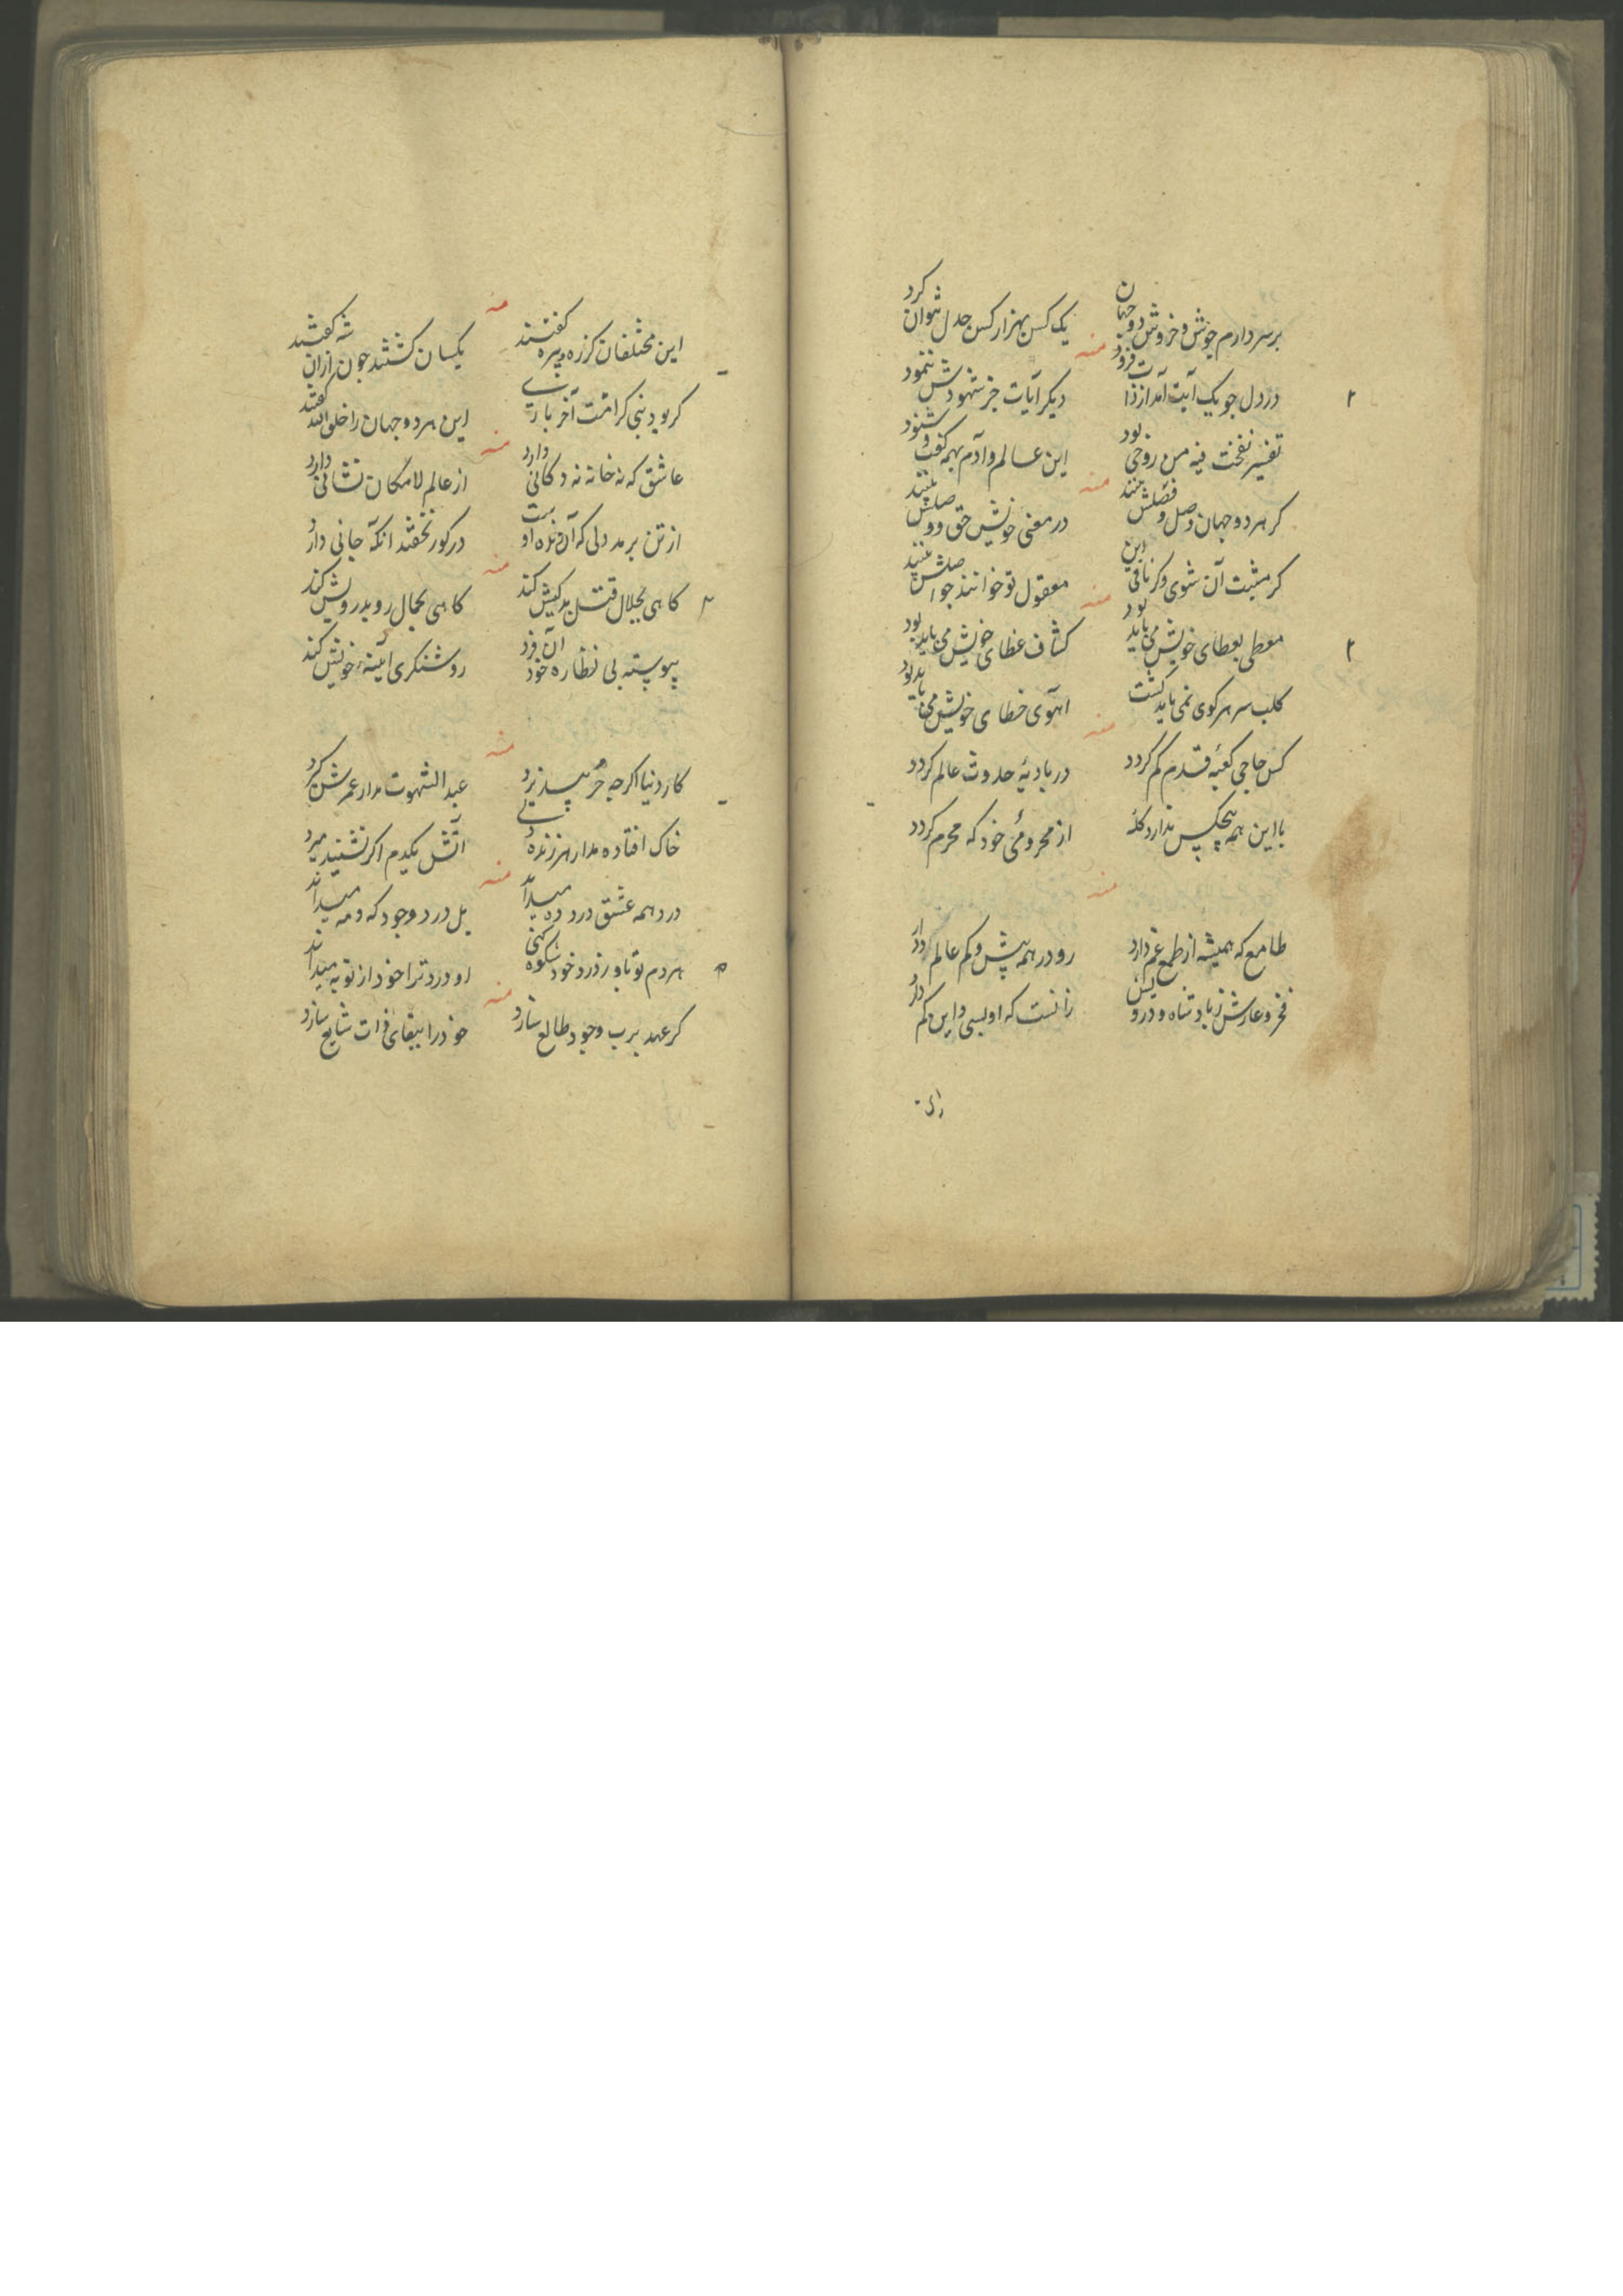 برسر دارم جوش و خروش دو جهان یک کس بهزار کس جدل نتوان کرد
منه
در دل جو یک آیت آمد از ذات فزود دیکر آیات جز شهودش ننمود
تفسیر نفخت فیه من روحی بود این عالم و آدم همه کفت و شنود
منه
کر هر دو جهان وصل و فصلش بینند در معنی خویش حق و
کر مثبت آن شوی و کر نافی این معقول تو خوانند جو
منه
معطی بعطای خویش می باید بود کشاف غطای خویش می باید بود
کلب سر هر کوی نمی باید کشت اهوی خطای خویش می باید بود
منه
کس حاجی کعبه قدم کم کردد در بادیهٔ حدوث عالم کردد
با این همه هیچکس ندارد کله از محرومی خود که محرم کردد
منه
طامع که همیشه از طمع غم دارد رو در همه بیش و کم عالم دارد
فخر و عارش ز بادشاه و درویش زانست که او بیش و این کم دارد
این مختلفان کز ره و بیره کفتند یکسان کشتند جون ازان شه کفتند
منه
کر بود نبی کر امت آخر باری این هر دو جهان را خلق الله کفتند
منه
عاشق که نه خانه نه دکانی دارد از عالم لامکان نشانی دارد
از تن برمد دلی که آن زنده اوست در کور نخفتد آنکه جانی دارد
منه
کاهی بجلال قتل بدکیش کند کاهی بجمال رو بدرویش کند
پیوسته بی نظاره خود آن فرد روشنکری آئینه خویش کند
منه
کار دنیا اکرجه خر نپذیرد عبد الشهوت مدار عمرش کیرد
خاک افتاده مدار هر زنده آتش یکدم اکر نشیند میرد
منه
درد همه عشق درد ده میداند بل درد وجود که و مه میداند
هر دم تو باو ز درد خود شکوه کنی او درد ترا خود از تو به میداند
منه
کر عهد برب وجود طالع سازد خود را ببقای ذات شایع سازد